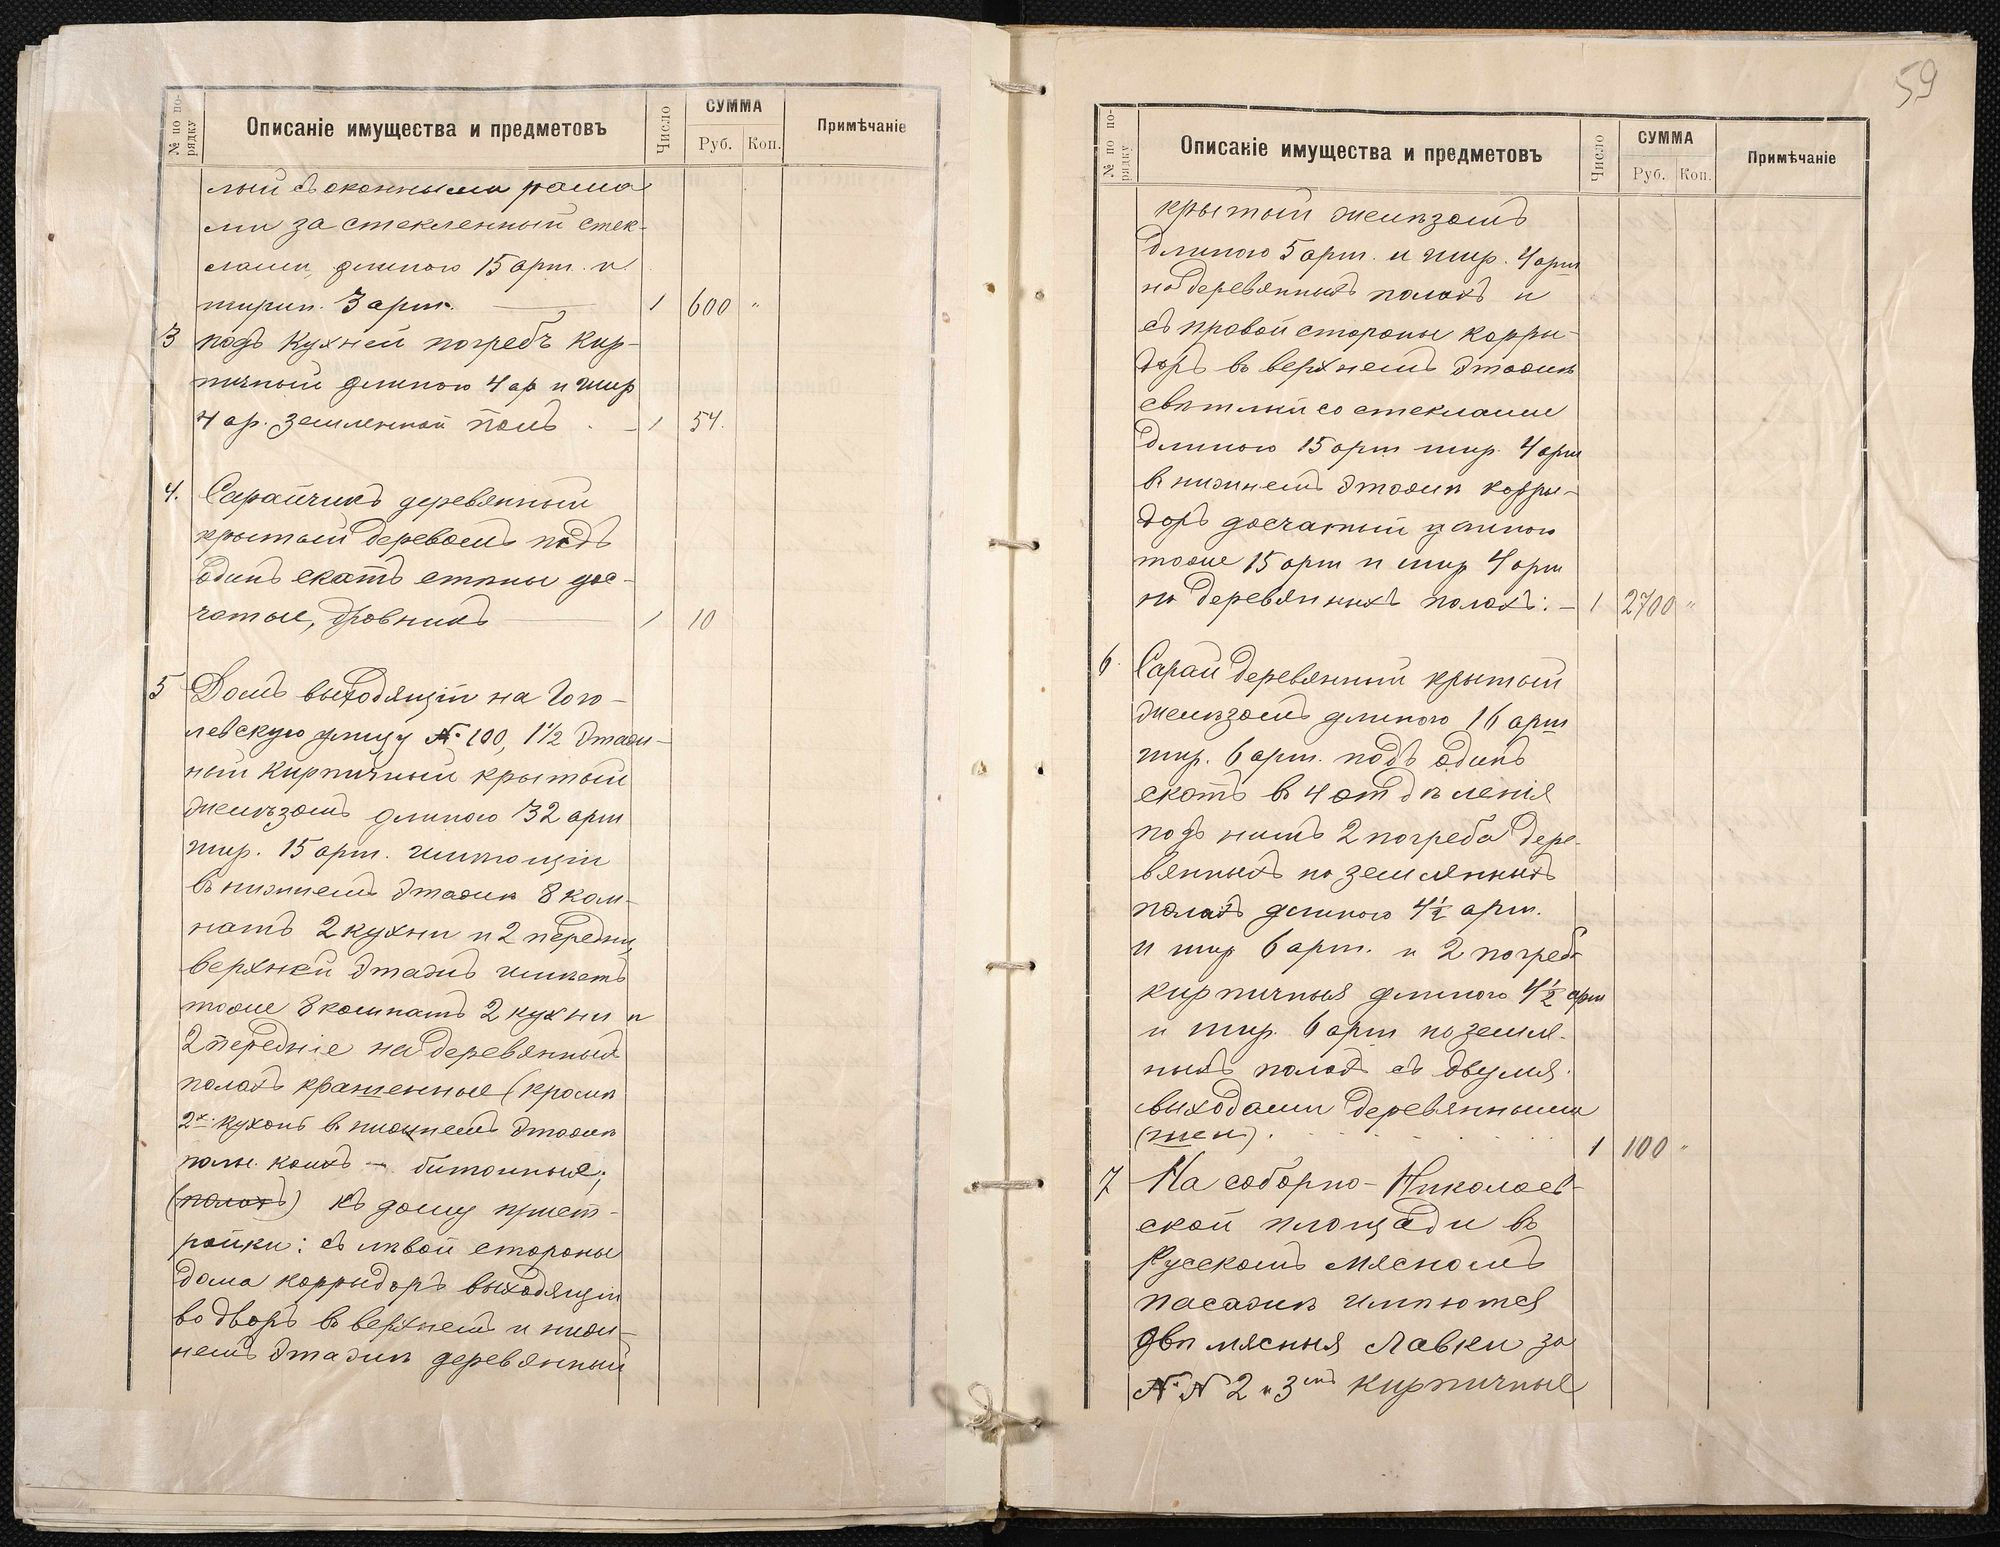 № по порядку Описаніе имущества и предметовъ Число СУММА Руб. Коп. Примѣчаніе
лый съ оконными рама
ми за стекленный стек-
лами, длиною 15 арш. и
ширин. 3 арш. — 1 600 "
3 подъ Кухней погребъ Кир-
пичный длиною 4 ар и шир
4 ар. Земленной полъ . — 1 54.
4. Сарайчикъ деревянный
крытый деревомъ подъ
одинъ скатъ стѣны дос-
чатые, дровникъ — 1 10
5 Домъ выходящій на Гого-
левскую улицу № 100, 1½ этаж-
ный Кирпичный крытый
желѣзомъ длиною 32 арш
шир. 15 арш. имѣющій
въ нижнемъ этажѣ 8 ком-
натъ 2 кухни и 2 передни,
верхней этажъ имѣетъ
тоже 8 комнатъ 2 кухни и
2 передніе на деревянныхъ
полахъ крашенные (кромѣ
2х. кухонь въ нижнемъ этажѣ
полы коихъ — битонные;
(полахъ) къ дому прист-
ройки: съ лѣвой стороны
дома корридоръ выходящій
во дворъ въ верхнемъ и ниж-
немъ этажѣ деревянный
59
№ по порядку Описаніе имущества и предметовъ Число СУММА Руб. Коп. Примѣчаніе
крытый желѣзомъ
длиною 5 арш. и шир. 4 арш
на деревянныхъ полахъ и
съ правой стороны корри-
доръ въ верхнемъ этажѣ
свѣтлый со стеклами
длиною 15 арш шир. 4 арш
въ нижнемъ этажѣ корри-
доръ досчатый длиною
тоже 15 арш и шир 4 арш
на деревянныхъ полахъ: — 1 2700 "
6. Сарай деревянный крытый
желѣзомъ длиною 16 арш
шир. 6 арш. подъ одинъ
скатъ въ 4 отдѣленія
подъ нимъ 2 погреба дере-
вянныхъ на земляныхъ
полахъ длиною 4½ арш.
и шир 6 арш. и 2 погреба
кирпичныя длиною 4½ арш
и шир. 6 арш на земля-
ныхъ полахъ съ двумя
выходами деревянными
1 100 "
7 На соборно-Николаев-
ской площади въ
Русскомъ мясномъ
пасажѣ имѣются
двѣ мясныя лавки за
№ № 2 и 3мъ кирпичные